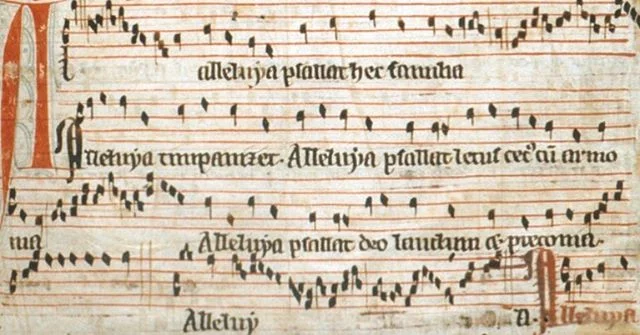 alleluya psallat hec familia
Alleluya timpanizet. Alleluya psallat letus cetꝰ cū armo
nia Alleluya psallat deo laudum & preconia.
Alleluy A. Alleluya